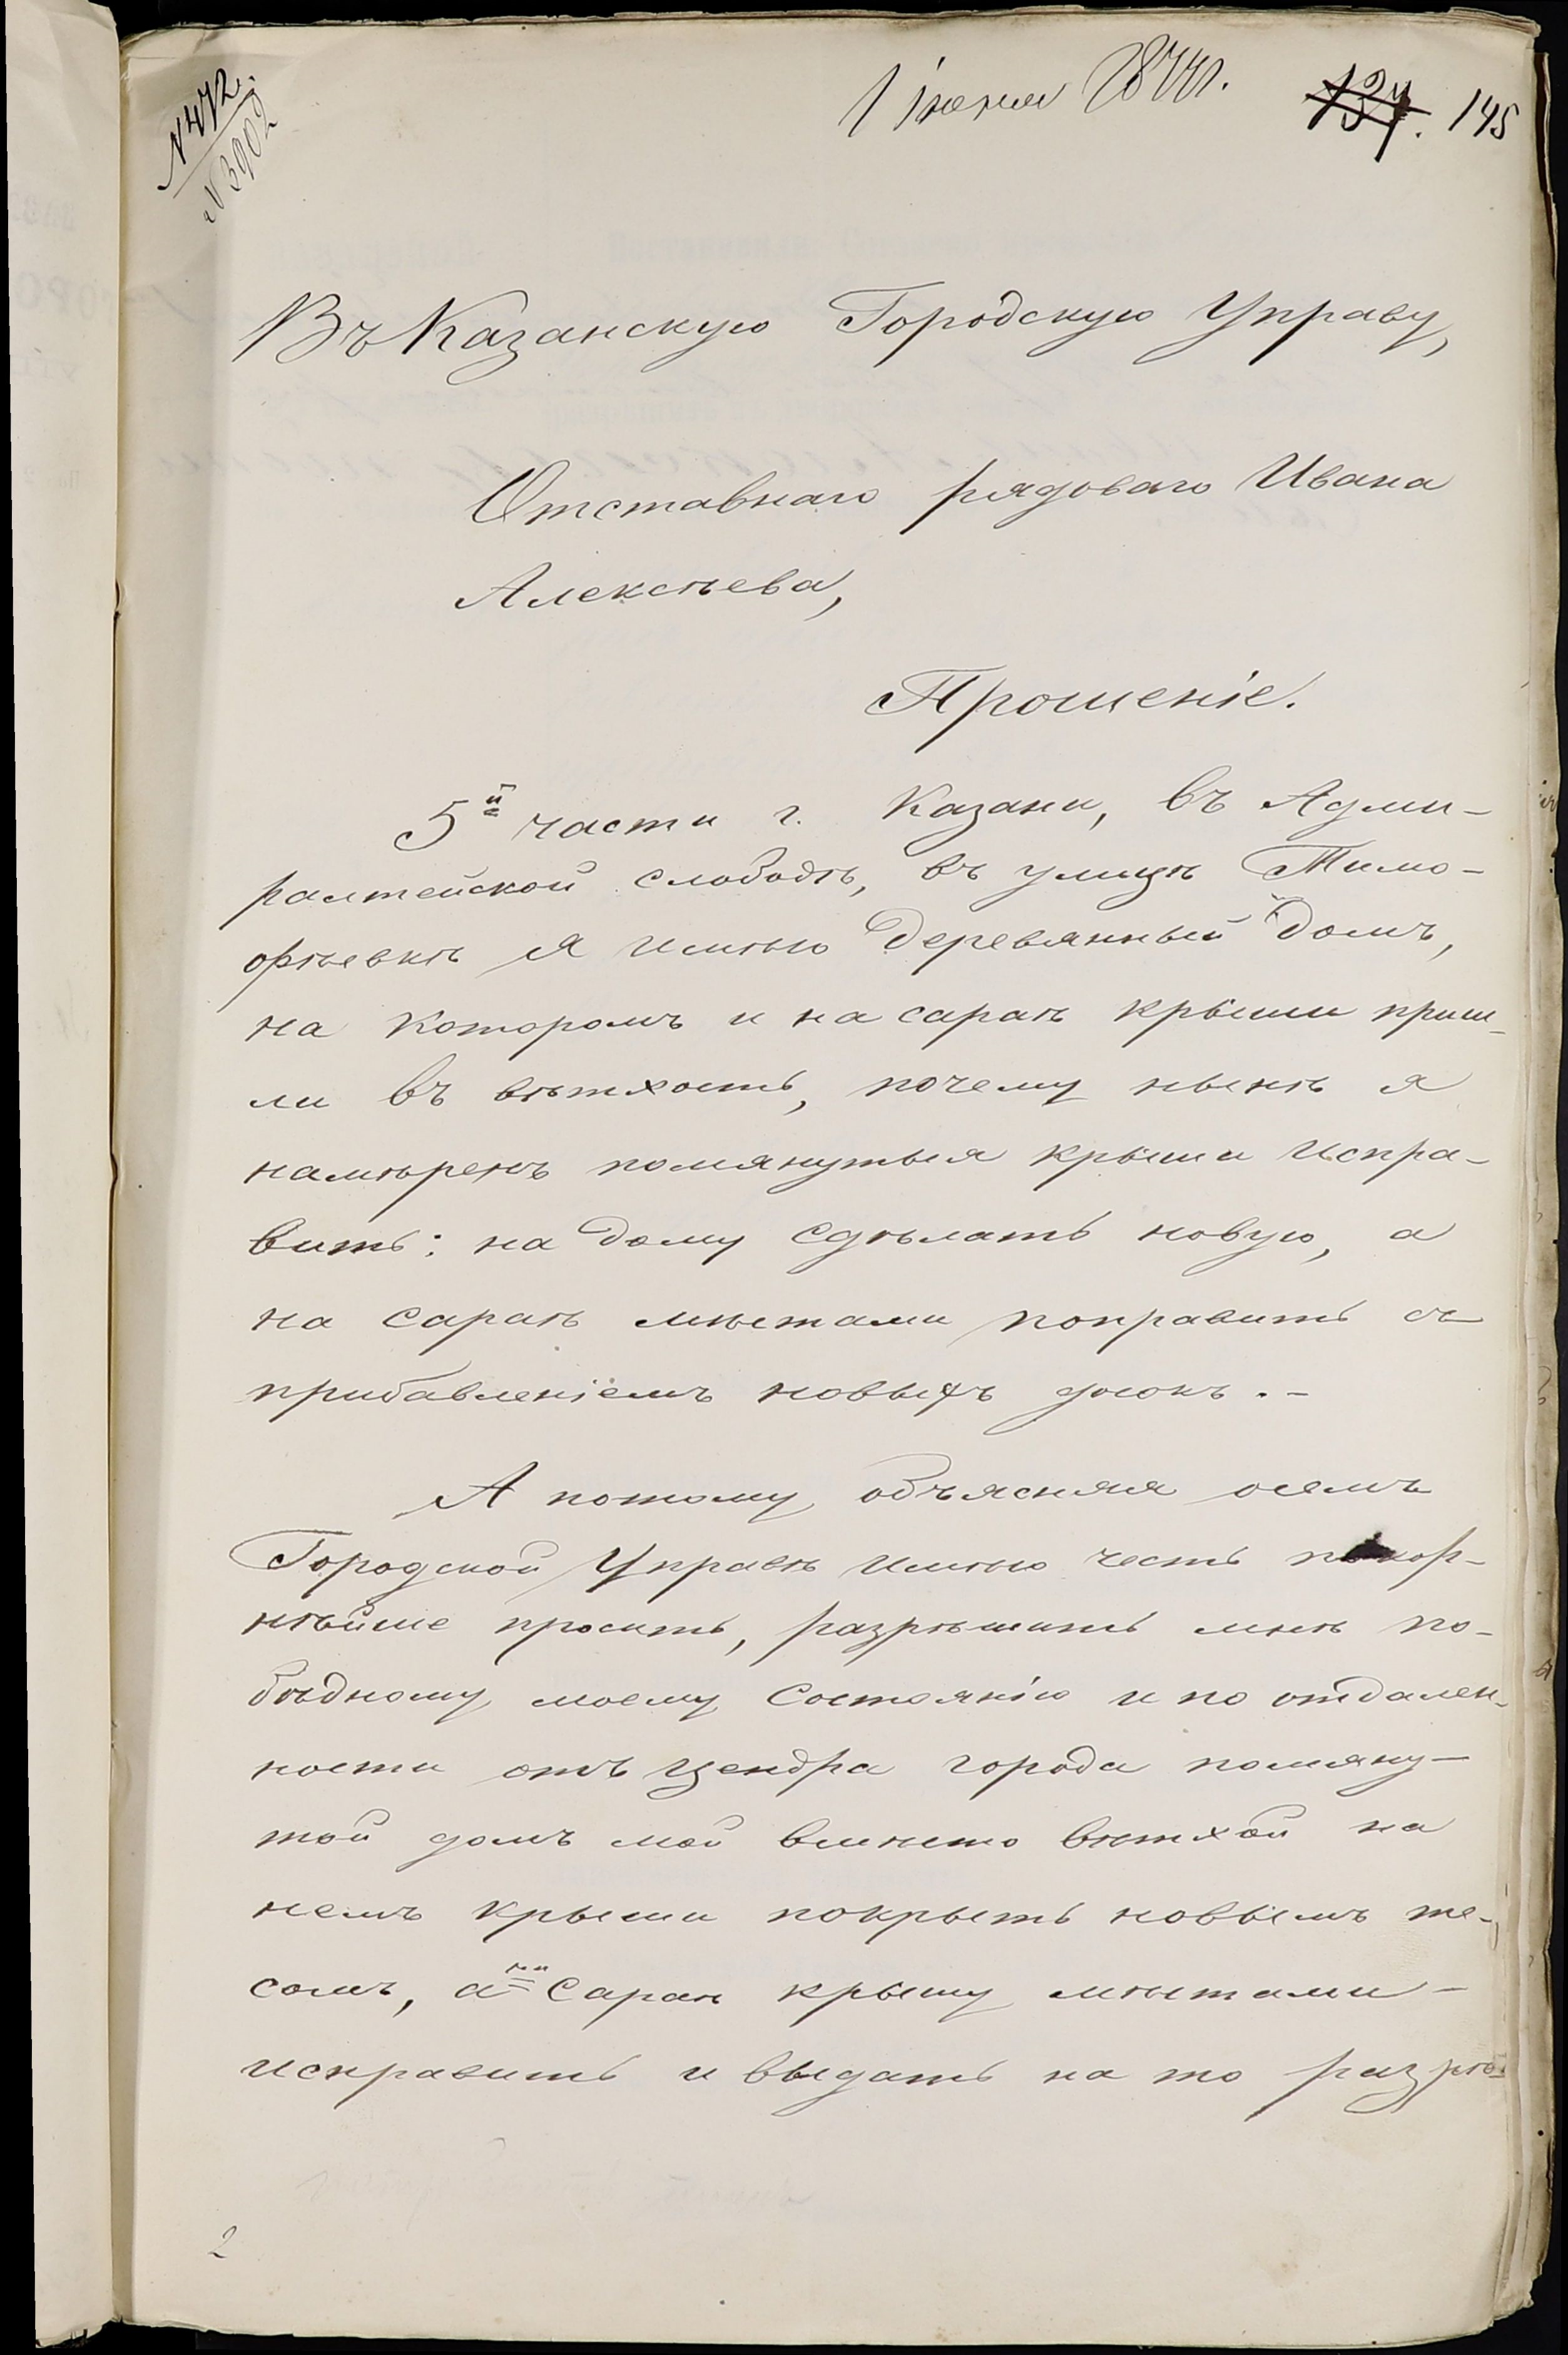 № 472.
№ 3902
1 июня 1877г.
137. 145
Въ Казанскую Городскую Управу,
Отставнаго рядоваго Ивана
Алексѣева,
Прошеніе.
5й части г. Казани, въ Адми-
ралтейской слободѣ, въ улицѣ Тимо-
фѣевкѣ я имѣю деревянный домъ,
на которомъ и на сараѣ крыши приш-
ли въ вѣтхость, почему нынѣ я
намѣренъ помянутыя крыши испра-
вить: на дому сдѣлать новую, а
на сараѣ мѣстами поправить съ
прибавленіемъ новыхъ досокъ.-
А потому объясняя осемъ
Городской Управѣ имѣю честь покор-
нѣйше просить, разрѣшить мнѣ по-
бѣдному моему состоянію и по отдален-
ности отъ цендра города помяну-
той домъ мой вмѣсто вѣтхой на
немъ крыши покрыть новымъ те-
сомъ, а на сараѣ крышу мѣстами-
исправить и выдать на то разрѣ-
2